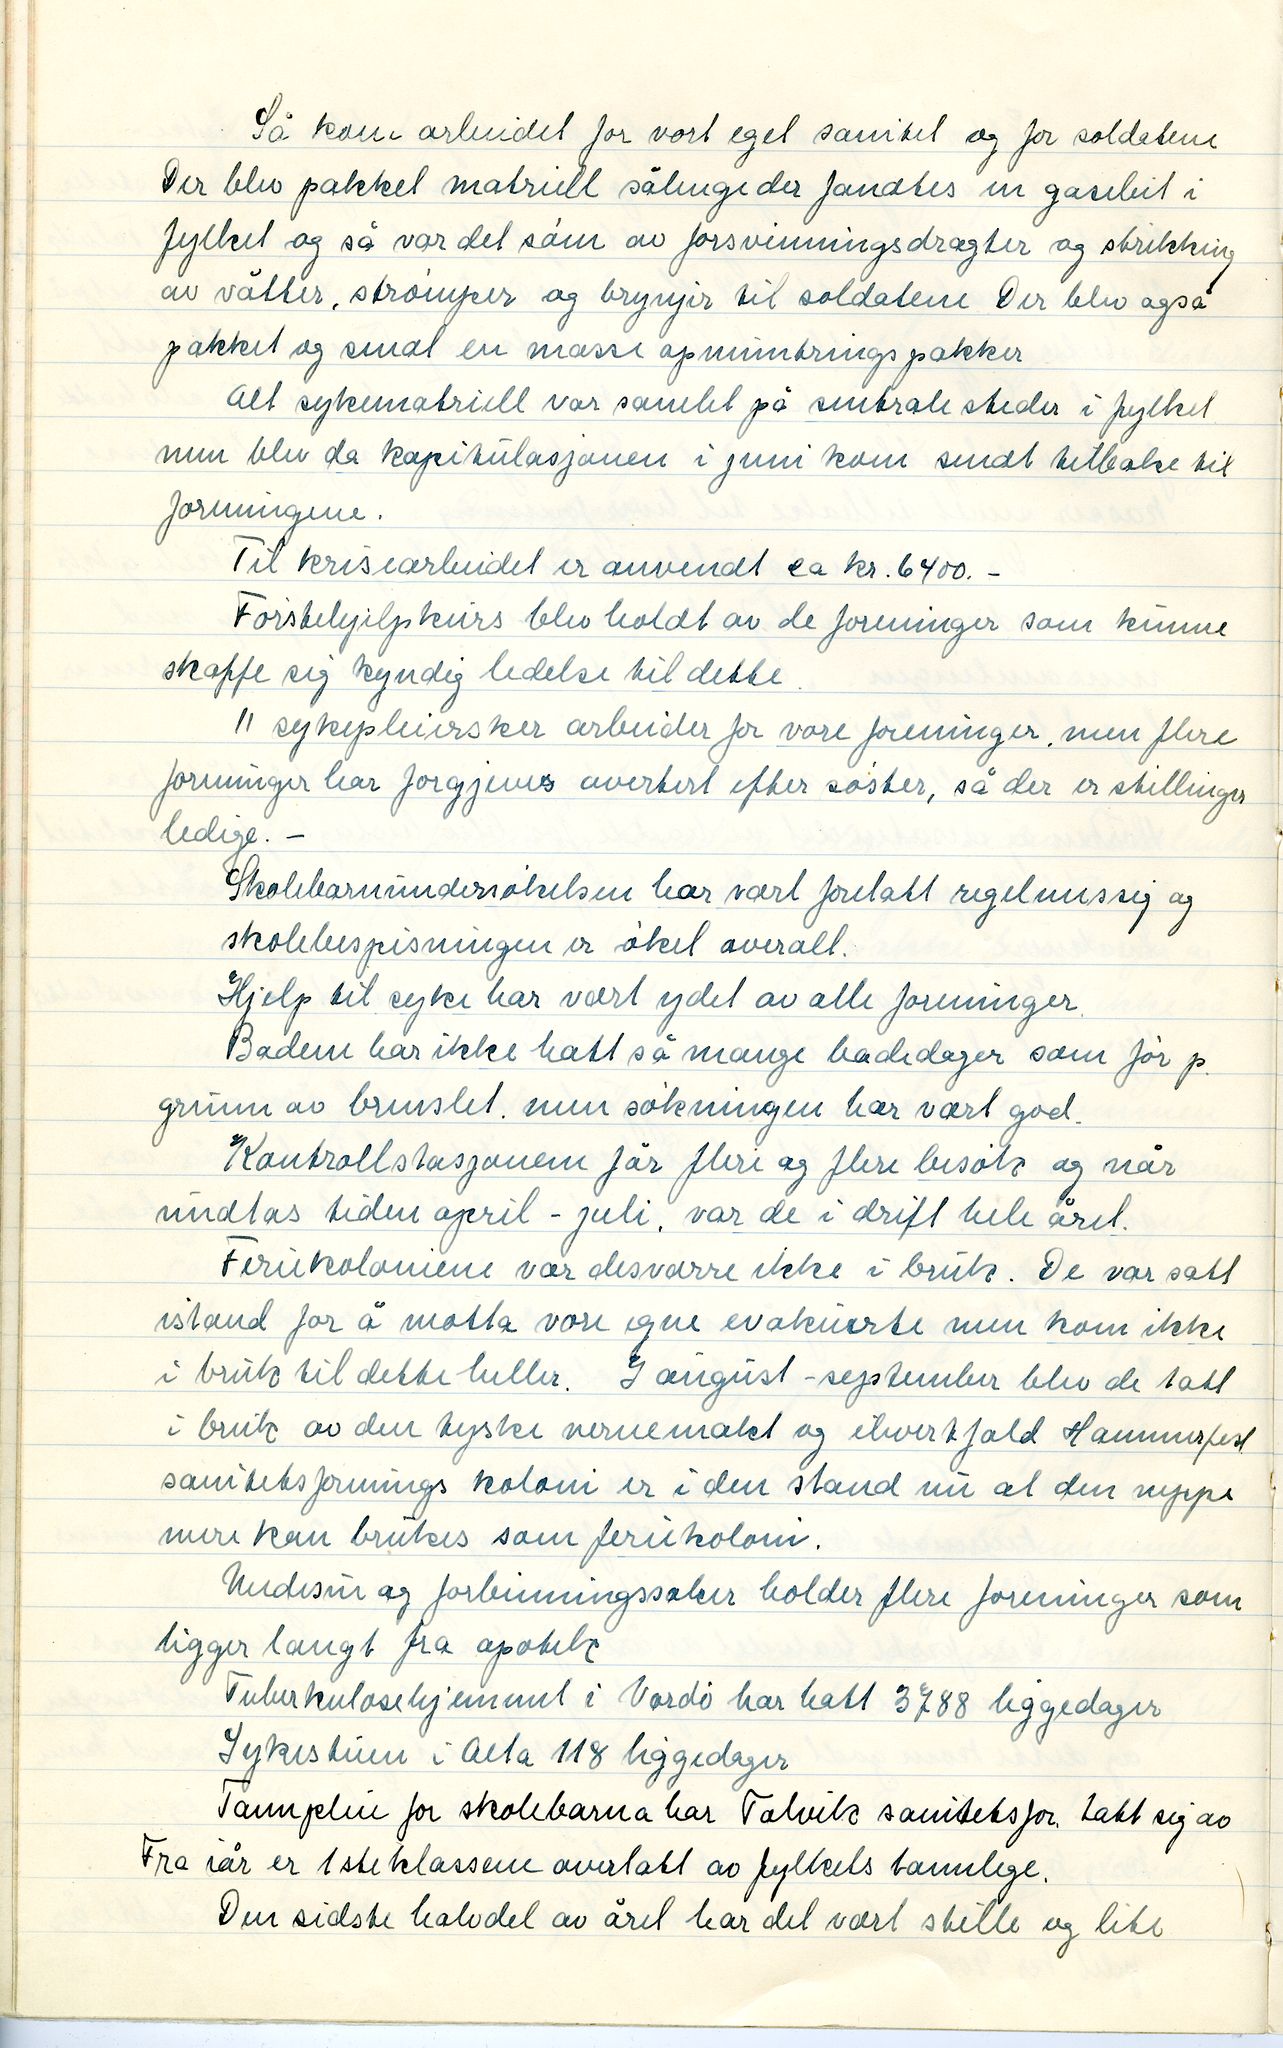 Så kom arbeidet for vort eget sanitet og for soldatene
Der blev pakket matriell sålenge der fandtes en gasebit i
fylket og så var det søm av forsvinningsdragter og strikking
av våtter, strømper og brynjer til soldatene Der blev også
pakket og sendt en masse opmuntringspakker
Alt sykematriell var samlet på sentrale steder i fylket
men blev da kapitulasjonen i juni kom sendt tilbake til
foreningene.
Til krisearbeidet er anvendt ca kr. 6400. -
Førstehjelpkurs blev holdt av de foreninger som kunne
skaffe sig kyndig ledelse til dette.
11 sykepleiersker arbeider for vore foreninger, men flere
foreninger har forgjeves avertert efter søster, så der er stillinger
ledige. -
Skolebarnundersøkelsen har vært foretatt regelmessig og
skolebespisningen er øket overalt.
Hjelp til syke har vært ydet av alle foreninger.
Badene har ikke hatt så mange badedager som før p.
grunn av brenslet. men søkningen har vært god.
Kontrollstasjonene får flere og flere besøk og når
undtas tiden april - juli, var de i drift hele året.
Feriekoloniene var desværre ikke i bruk. De var satt
istand for å motta vore egne evakuerte men kom ikke
i bruk til dette heller. I august - september blev de tatt
i bruk av den tyske vernemakt og ihvertfald Hammerfest
sanitetsforenings koloni er i den stand nu at den neppe
mere kan brukes som feriekoloni.
Medesin og forbinningssaker holder flere foreninger som
ligger langt fra apotek
Tuberkulosehjemmet i Vardø har hatt 3788 liggedager
Sykestuen i Alta 118 liggedager
Tannpleie for skolebarna har Talvik sanitetsfor. tatt sig av
Fra iår er 1steklassene overtatt av fylkets tannlege.
Den sidste halvdel av året har det vært stille og lite